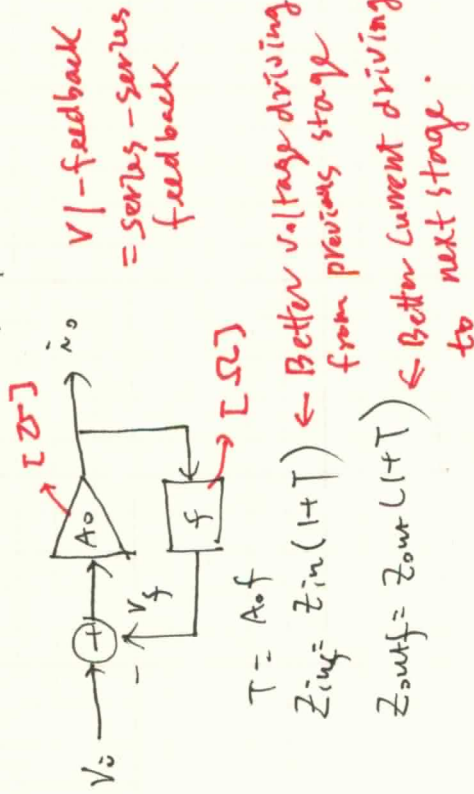 VI-feedback
= series-series
feedback
[℧]
A₀
i₀
Vᵢ
+
-
V_f
f
[Ω]
T = A₀f
Z_inf = Z_in (1+T) ← Better voltage driving
from previous stage
Z_outf = Z_out (1+T) ← Better current driving
to next stage.